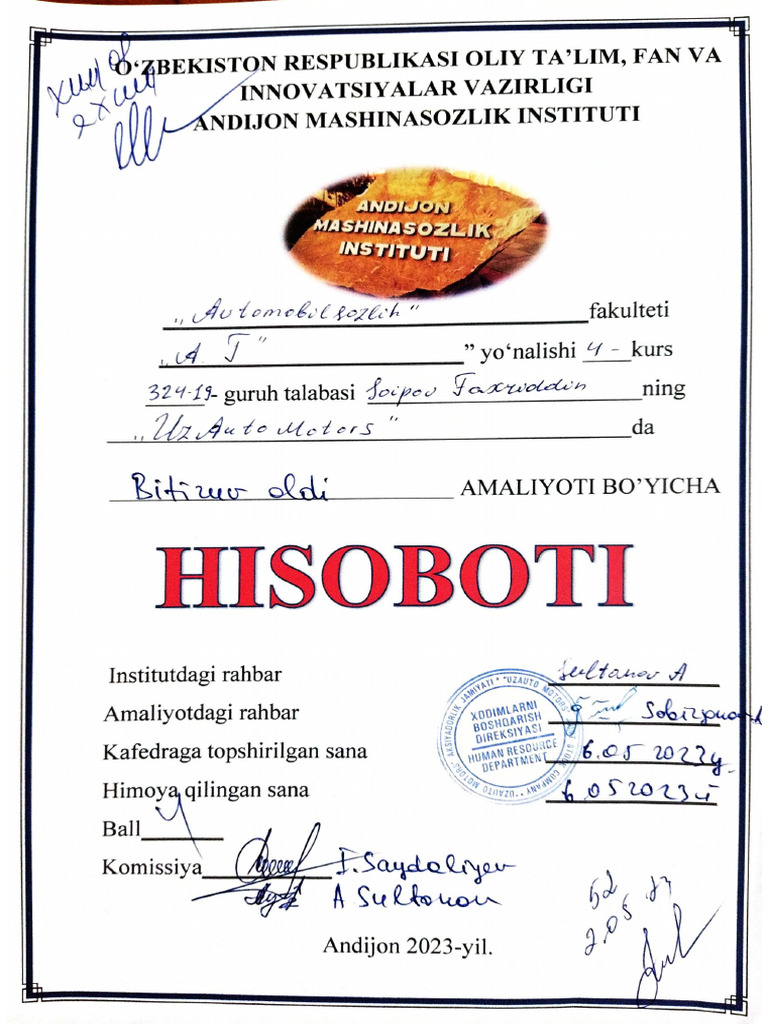 O‘ZBEKISTON RESPUBLIKASI OLIY TA’LIM, FAN VA
INNOVATSIYALAR VAZIRLIGI
ANDIJON MASHINASOZLIK INSTITUTI
ANDIJON
MASHINASOZLIK
INSTITUTI
„Avtomobilsozlih" fakulteti
„A. T" ” yo‘nalishi 4 - kurs
324-19- guruh talabasi Soipov Faxriddin ning
„UzAuto Motors" da
Bitiruv oldi AMALIYOTI BO’YICHA
HISOBOTI
Institutdagi rahbar Sultanov A
Amaliyotdagi rahbar
Kafedraga topshirilgan sana 6.05 2023y.
Himoya qilingan sana 6.05 2023
XODIMLARNI
BOSHQARISH
DIREKSIYASI
HUMAN RESOURCE
DEPARTMENT
"UZAUTO MOTORS" AKSIYADORLIK JAMIYATI * "UZAUTO MOTORS" JOINT STOCK COMPANY *
Ball 4
Komissiya I. Saydaliyev
A Sultonov
Andijon 2023-yil.